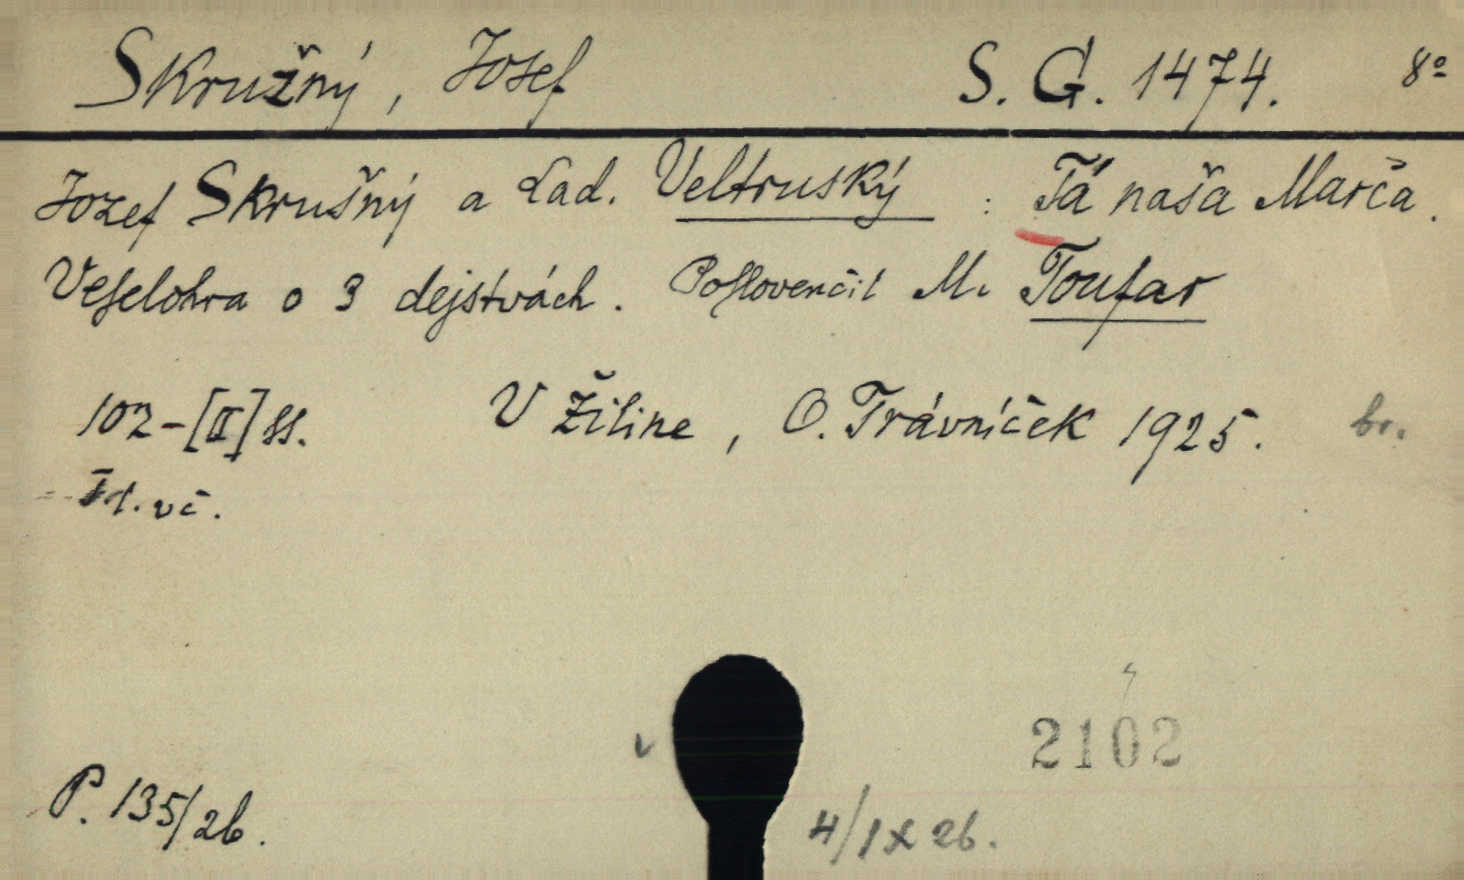 Skružný, Josef S. G. 1474. 8º
Jozef Skrušný a Lad. Veltruský : Tá naša Marča.
Veselohra o 3 dejstvách. Poslovenčil M. Toufar
102-[II] ss. V Žiline, O. Trávníček 1925. br.
Tit. vč.
2102
P. 135/26.
4/IX 26.